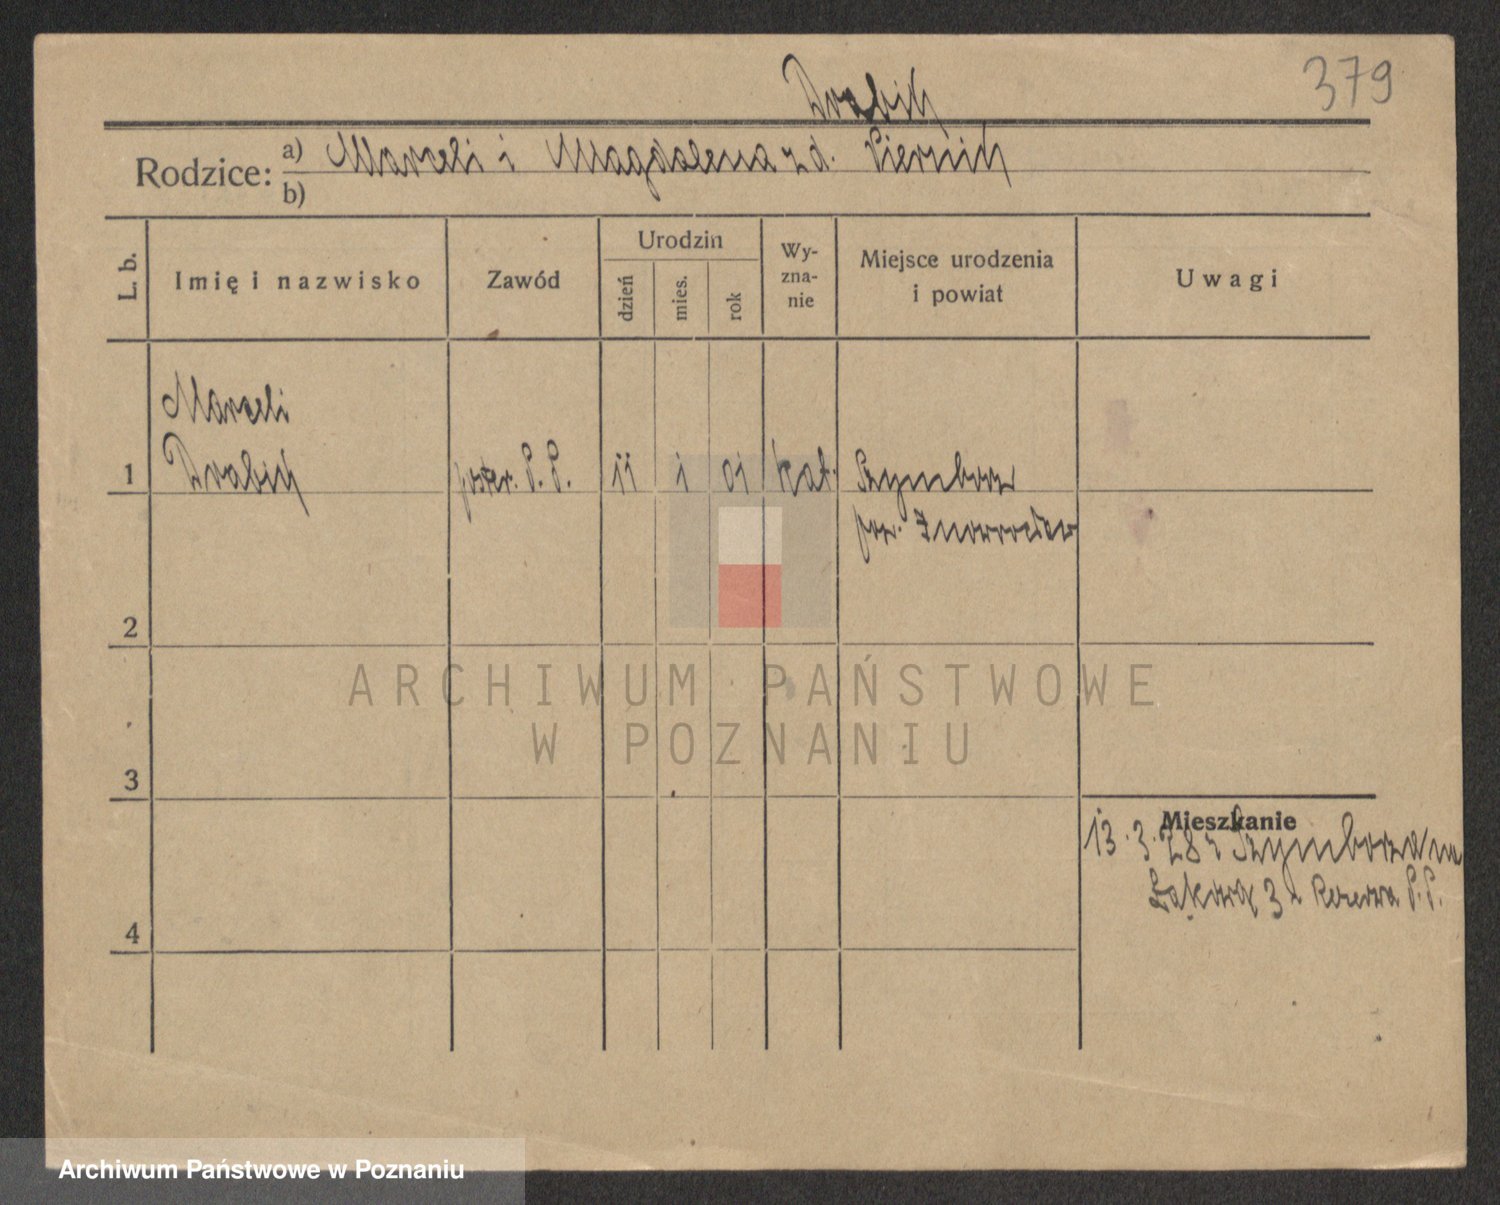 379
Drabik
Rodzice: a) Marceli i Magdalena z d. Piernik
b)
L. b.
Imię i nazwisko
Zawód
Urodzin
dzień
mies.
rok
Wy-
zna-
nie
Miejsce urodzenia
i powiat
Uwagi
Marceli
1 Drabik poster. P. P. 11 1 01 kat. Szymborze
pow. Inowrocław
2
3
4
Mieszkanie
13. 3. 28 z Szymborza/na
Łąkową 3 Rezerwa P. P.
ARCHIWUM PAŃSTWOWE
W POZNANIU
Archiwum Państwowe w Poznaniu